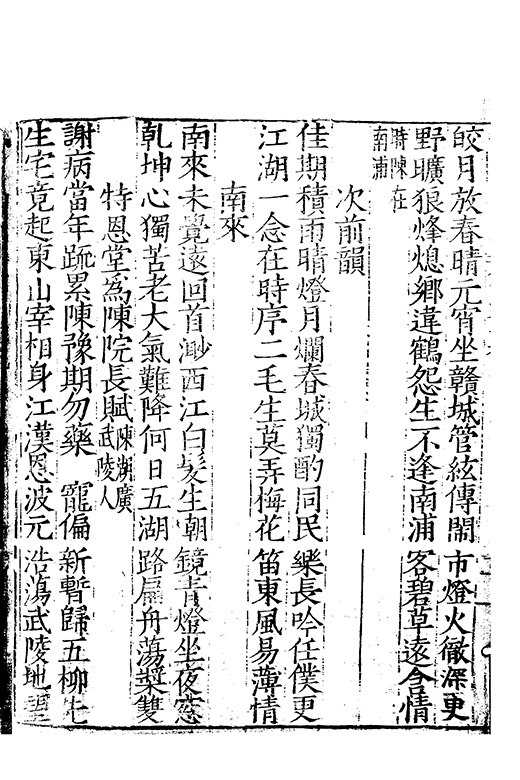 皎月放春晴元宵坐贛城管絃傳閙市燈火徹深更
野曠狼烽熄鄉違鶴怨生不逢南浦客碧草遠含情
時陳在
南浦
次前韻
佳期積雨晴燈月爛春城獨酌同民樂長吟任僕更
江湖一念在時序二毛生莫弄梅花笛東風易薄情
南來
南來未覺遠回首渺西江白髮生朝鏡青燈坐夜窓
乾坤心獨苦老大氣難降何日五湖路扁舟蕩槳雙
特恩堂爲陳院長賦陳湖廣武陵人
謝病當年疏累陳豫期勿藥寵偏新暫歸五柳先
生宅竟起東山宰相身江漢恩波元浩蕩武陵地望